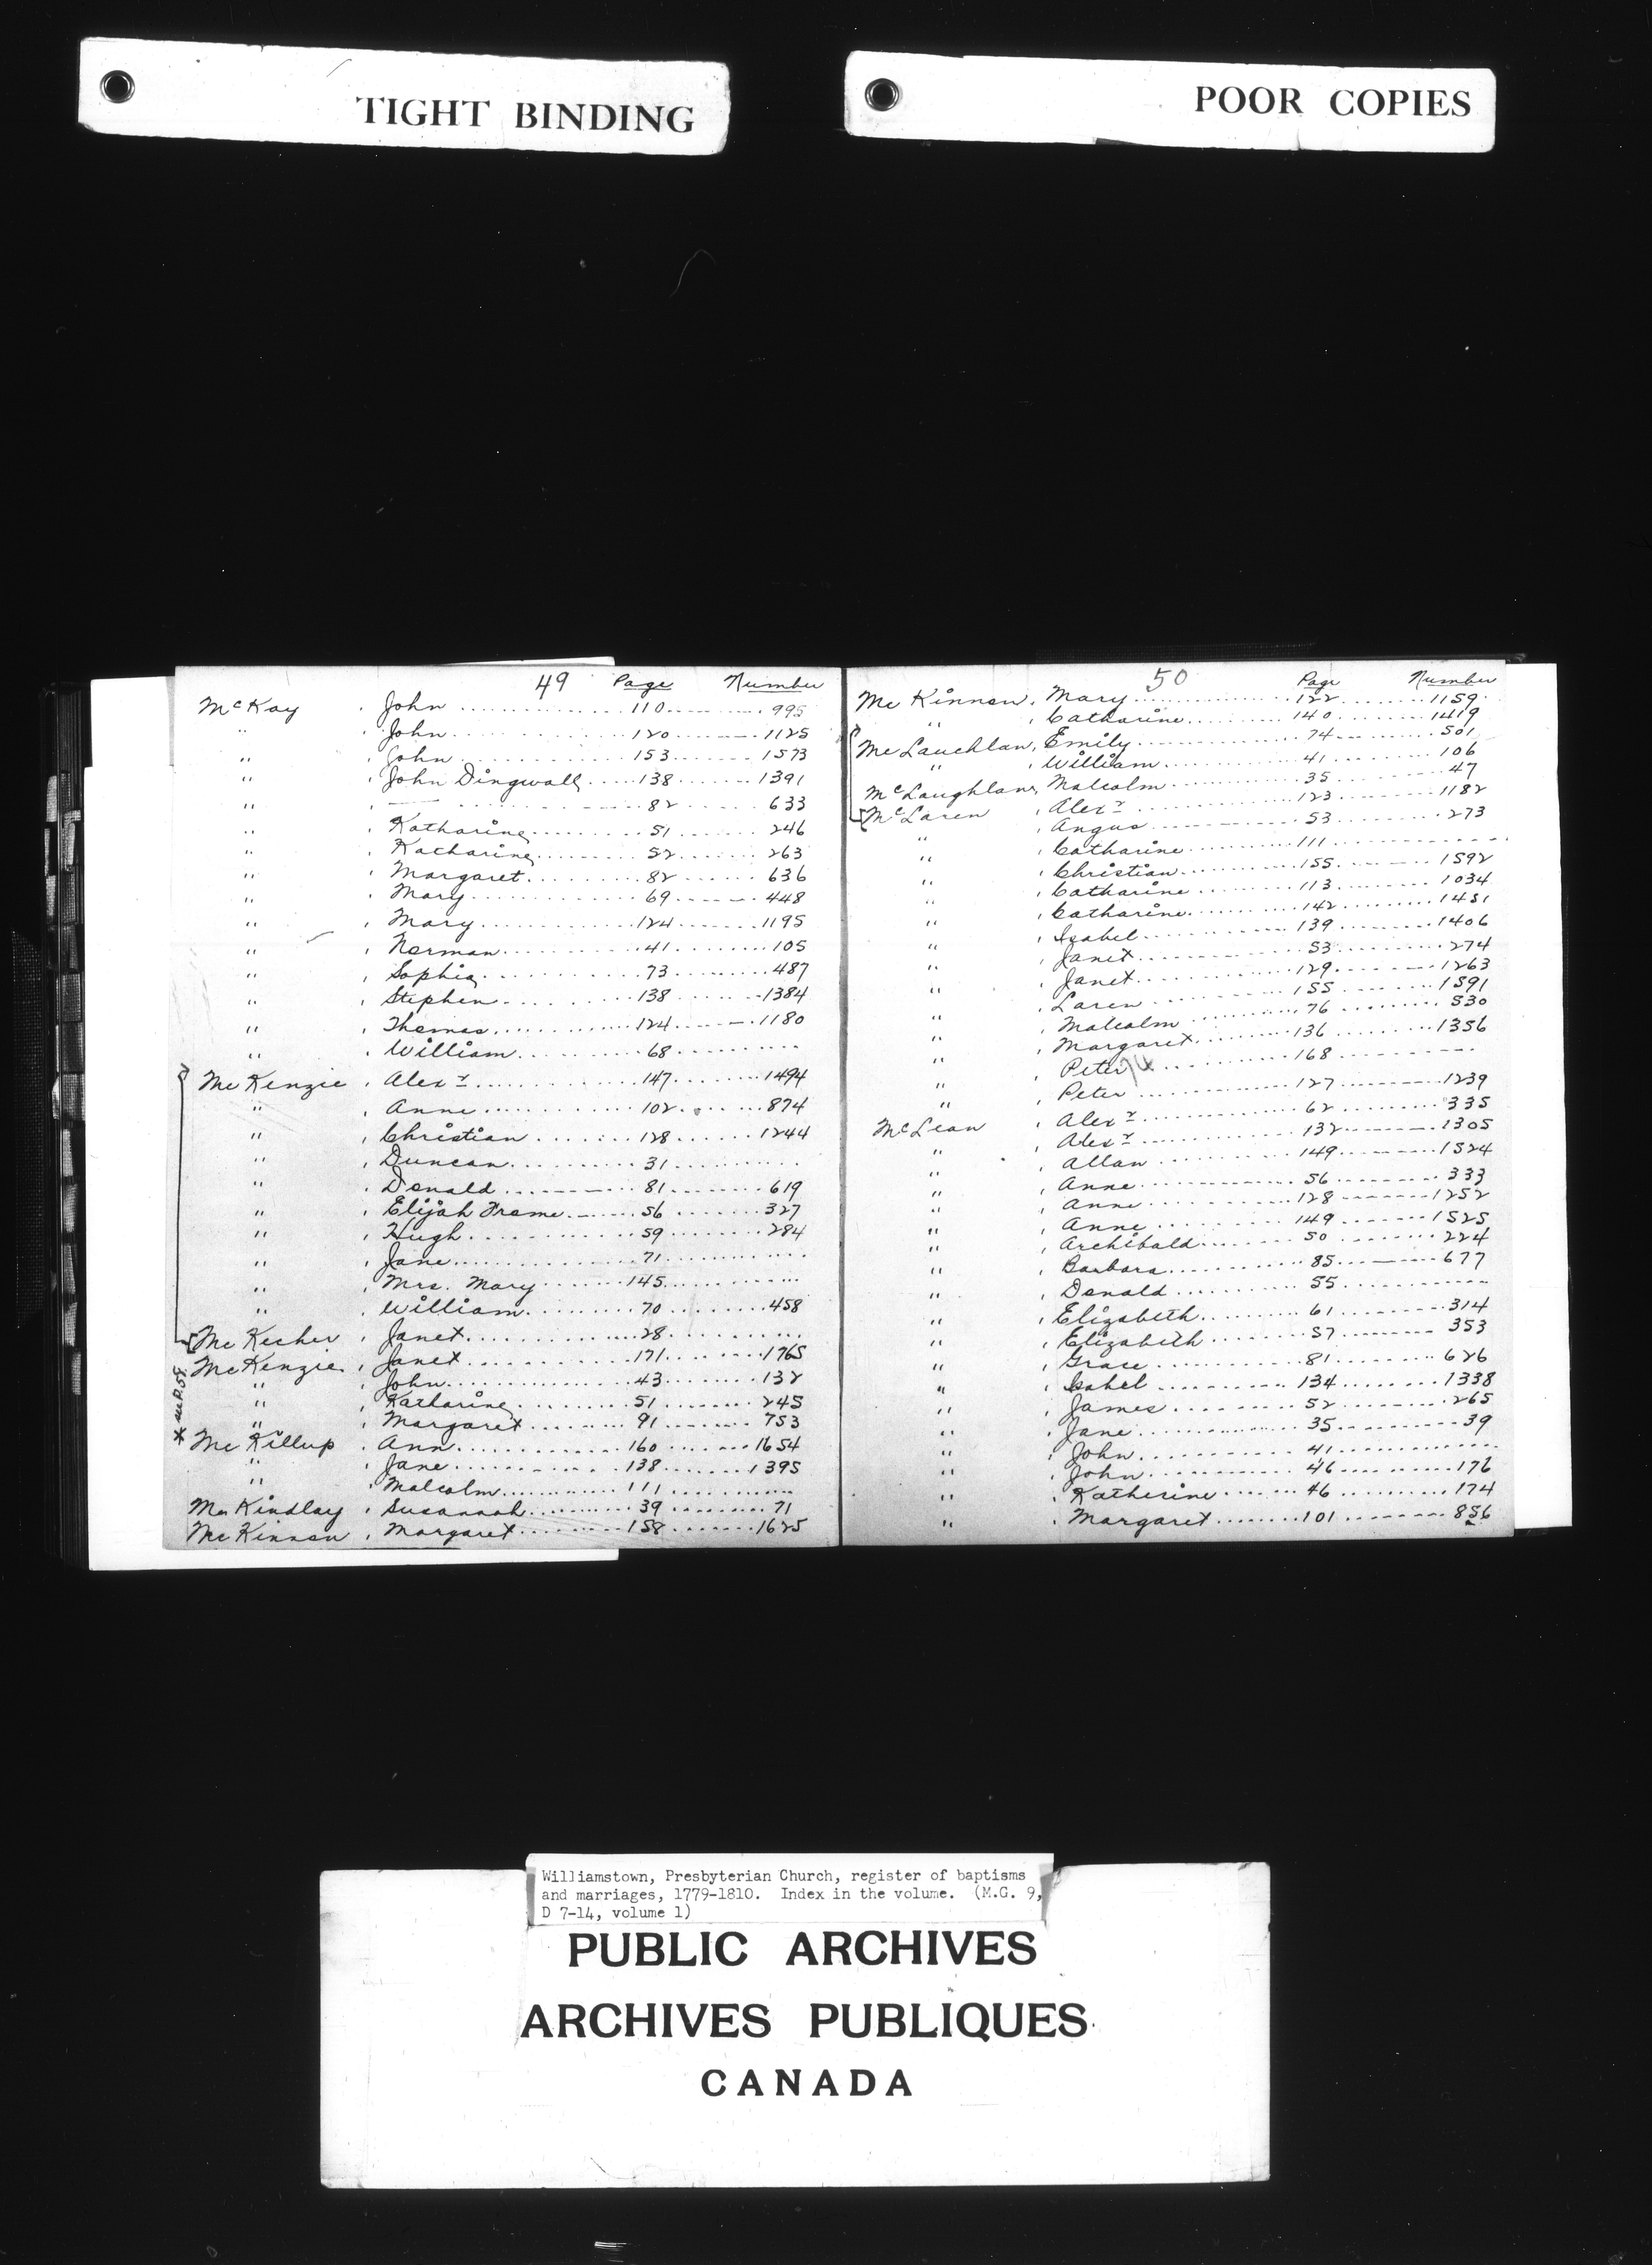 TIGHT BINDING
POOR COPIES
49 Page Number
McKay , John 110 995
" , John 120 1125
" , John 153 1573
" , John Dingwall 138 1391
" , — 82 633
" , Katharine 51 246
" , Katharine 52 263
" , Margaret 82 636
" , Mary 69 448
" , Mary 124 1195
" , Norman 41 105
" , Sophia 73 487
" , Stephen 138 1384
" , Thomas 124 1180
" , William 68
McKenzie , Alexr 147 1494
" , Anne 102 874
" , Christian 128 1244
" , Duncan 31
" , Donald 81 619
" , Elijah Frame 56 327
" , Hugh 59 284
" , Jane 71
" , Mrs. Mary 145
" , William 70 458
McKecher , Janet 28
McKenzie , Janet 171 1765
" , John 43 132
" , Katharine 51 245
" , Margaret 91 753
McKillup , Ann 160 1654
" , Jane 138 1395
" , Malcolm 111
McKindlay , Susannah 39 71
McKinnon , Margaret 158 1625
50 Page Number
McKinnon , Mary 122 1159
" , Catharine 140 1419
McLauchlan , Emily 74 501
" , William 41 106
McLaughlan , Malcolm 35 47
McLaren , Alexr 123 1182
" , Angus 53 273
" , Catharine 111
" , Christian 155 1592
" , Catharine 113 1034
" , Catharine 142 1431
" , Isabel 139 1406
" , Janet 53 274
" , Janet 129 1263
" , Laren 155 1591
" , Malcolm 76 530
" , Margaret 136 1356
" , Peter 168
" , Peter 127 1239
McLean , Alexr 62 335
" , Alexr 132 1305
" , Allan 149 1524
" , Anne 56 333
" , Anne 128 1252
" , Anne 149 1525
" , Archibald 50 224
" , Barbara 85 677
" , Donald 55
" , Elizabeth 61 314
" , Elizabeth 57 353
" , Grace 81 626
" , Isabel 134 1338
" , James 52 265
" , Jane 35 39
" , John 41
" , John 46 176
" , Katherine 46 174
" , Margaret 101 856
Williamstown, Presbyterian Church, register of baptisms
and marriages, 1779-1810. Index in the volume. (M.G. 9,
D 7-14, volume 1)
PUBLIC ARCHIVES
ARCHIVES PUBLIQUES
CANADA